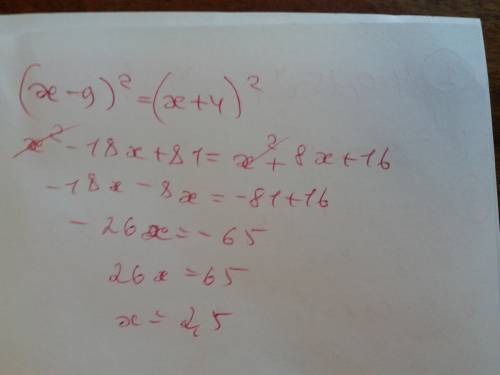 (x-9)²=(x+4)²
x²-18x+81=x²+8x+16
-18x-8x=-81+16
-26x=-65
26x=65
x=2,5